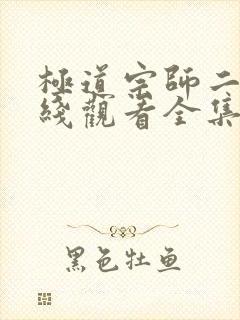 極道宗師二
綫觀看全集
黑色牡鱼